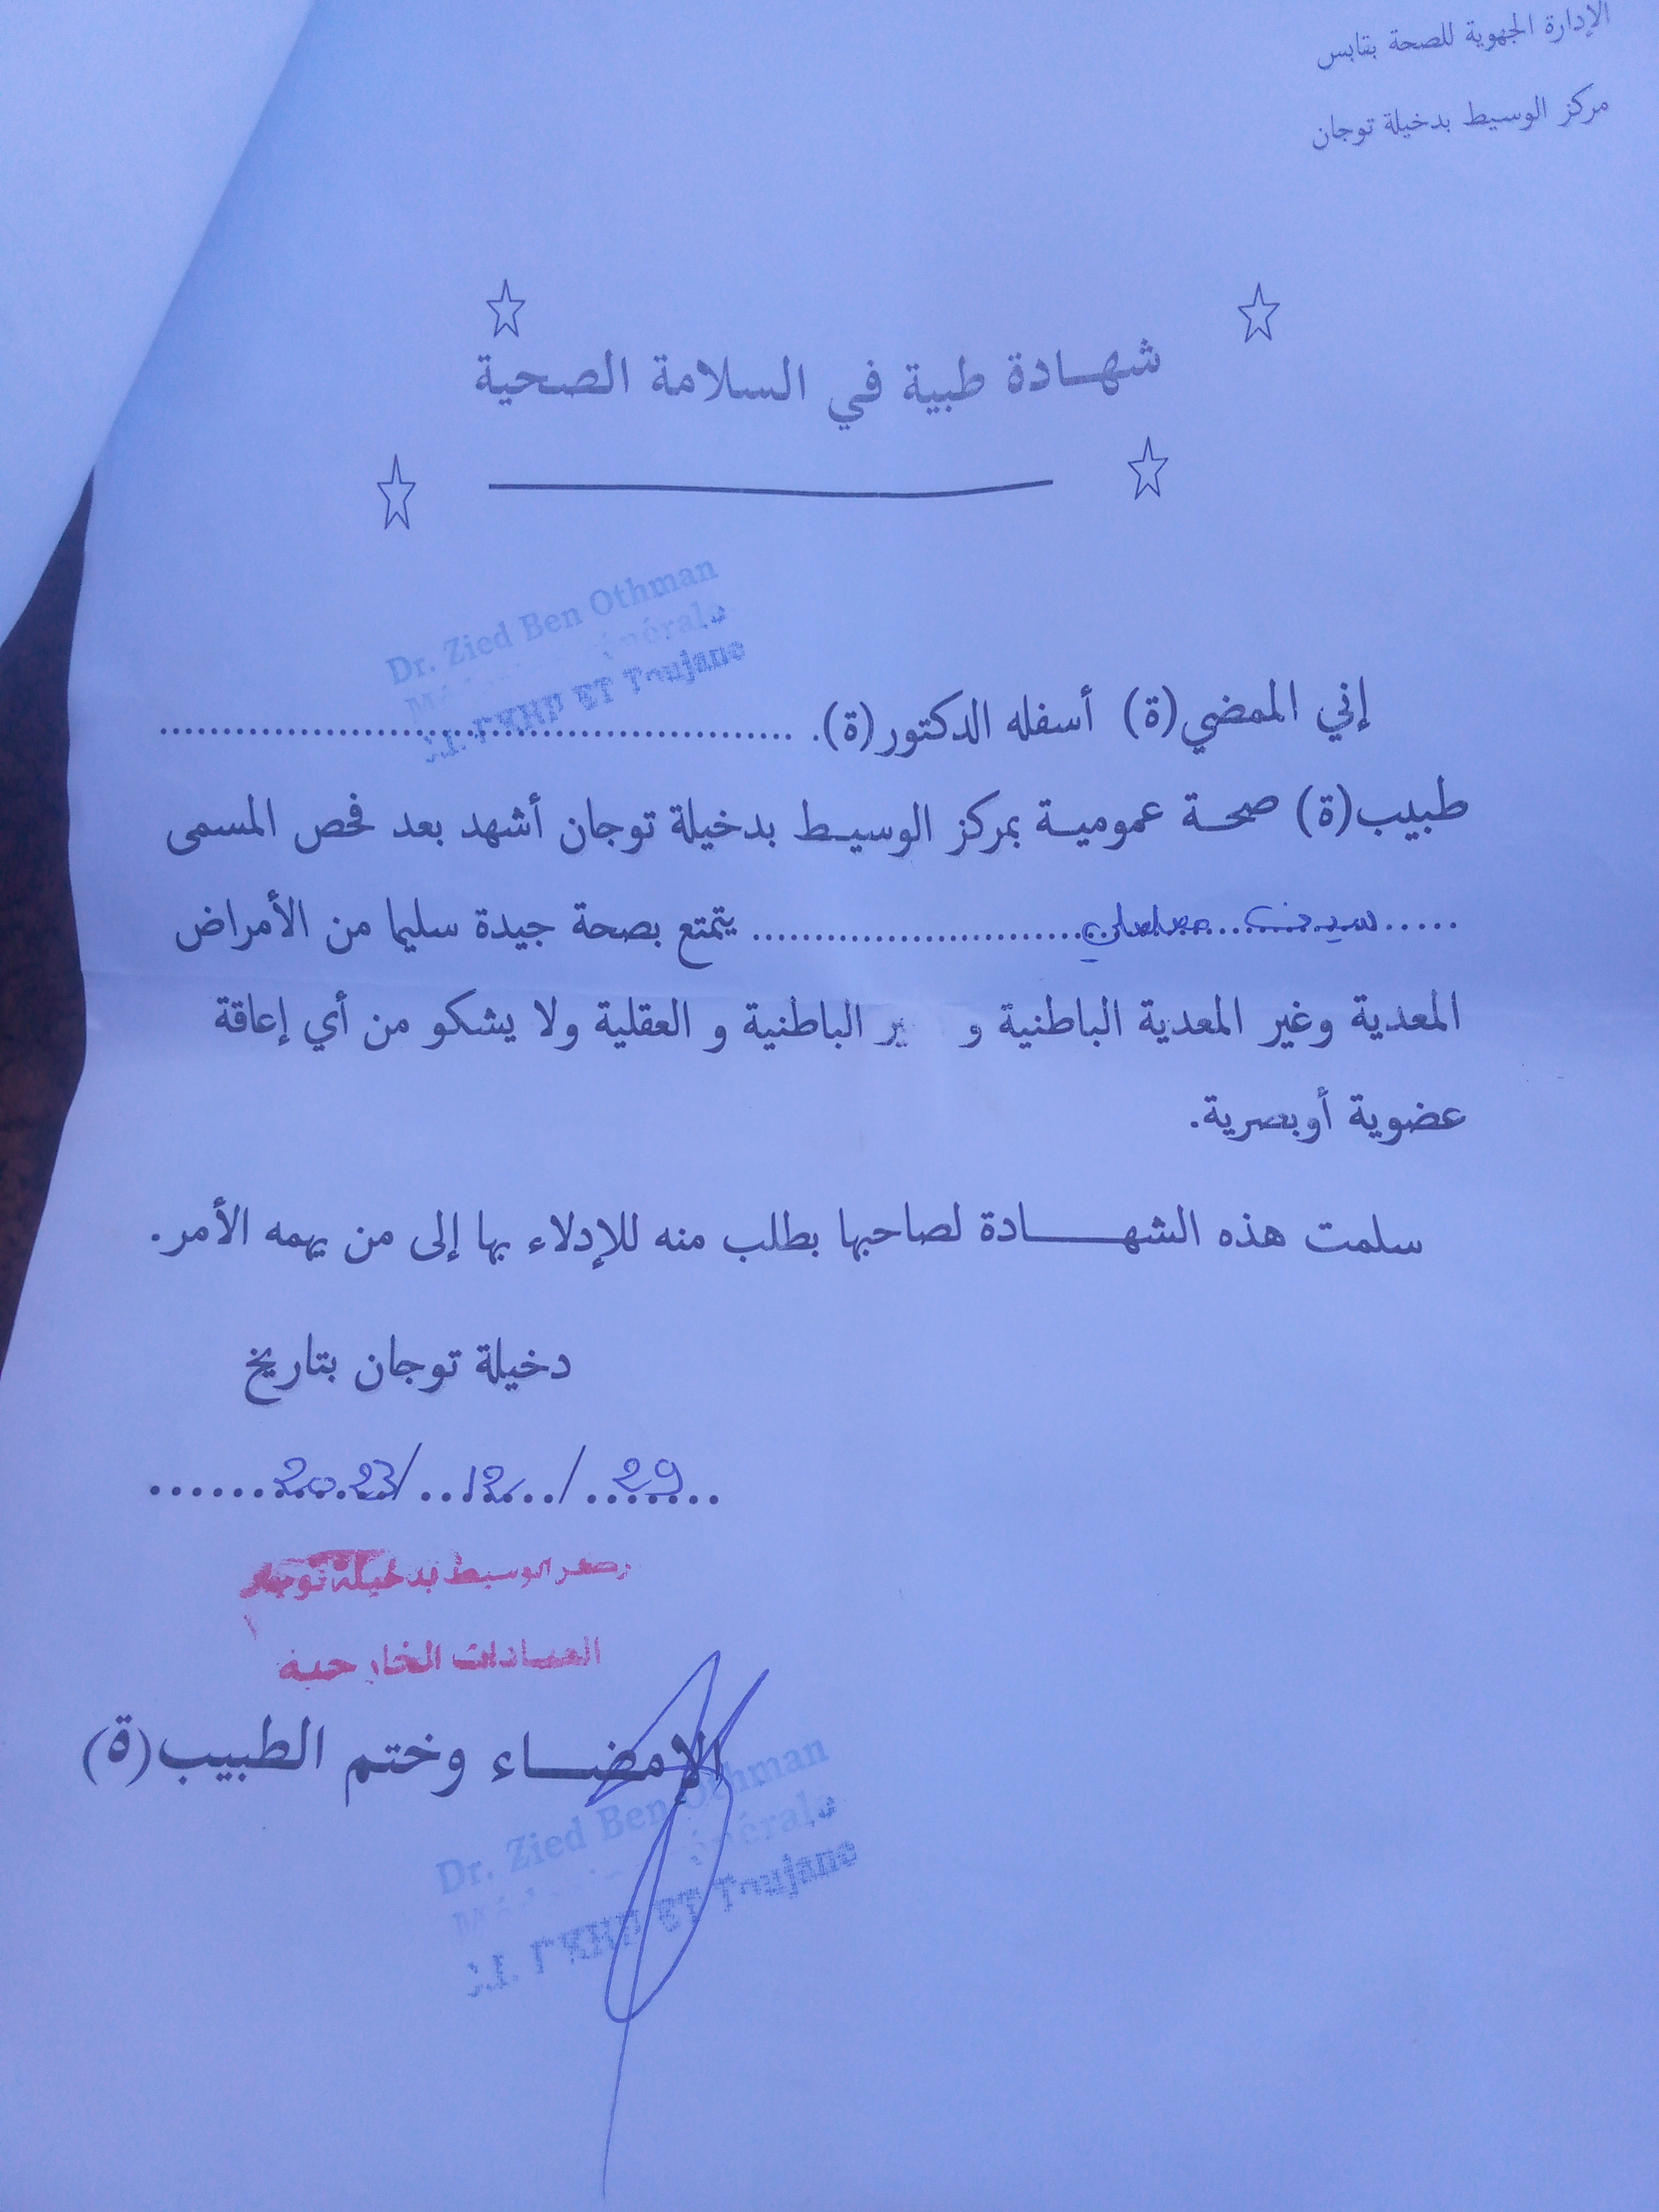 الإدارة الجهوية للصحة بقابس
مركز الوسيط بدخيلة توجان
شهادة طبية في السلامة الصحية
Dr. Zied Ben Othman
Toujane
إني الممضي(ة) أسفله الدكتور(ة). ..........
طبيب(ة) صحة عمومية بمركز الوسيط بدخيلة توجان أشهد بعد فحص المسمى
..... سيف .......... يتمتع بصحة جيدة سليما من الأمراض
المعدية وغير المعدية الباطنية و ير الباطنية و العقلية ولا يشكو من أي إعاقة
عضوية أوبصرية.
سلمت هذه الشهادة لصاحبها بطلب منه للإدلاء بها إلى من يهمه الأمر.
دخيلة توجان بتاريخ
29 / 12 / 2023
الوسيط بدخيلة توجان
العيادات الخارجية
الإمضاء وختم الطبيب(ة)
Dr. Zied Ben Othman
Toujane